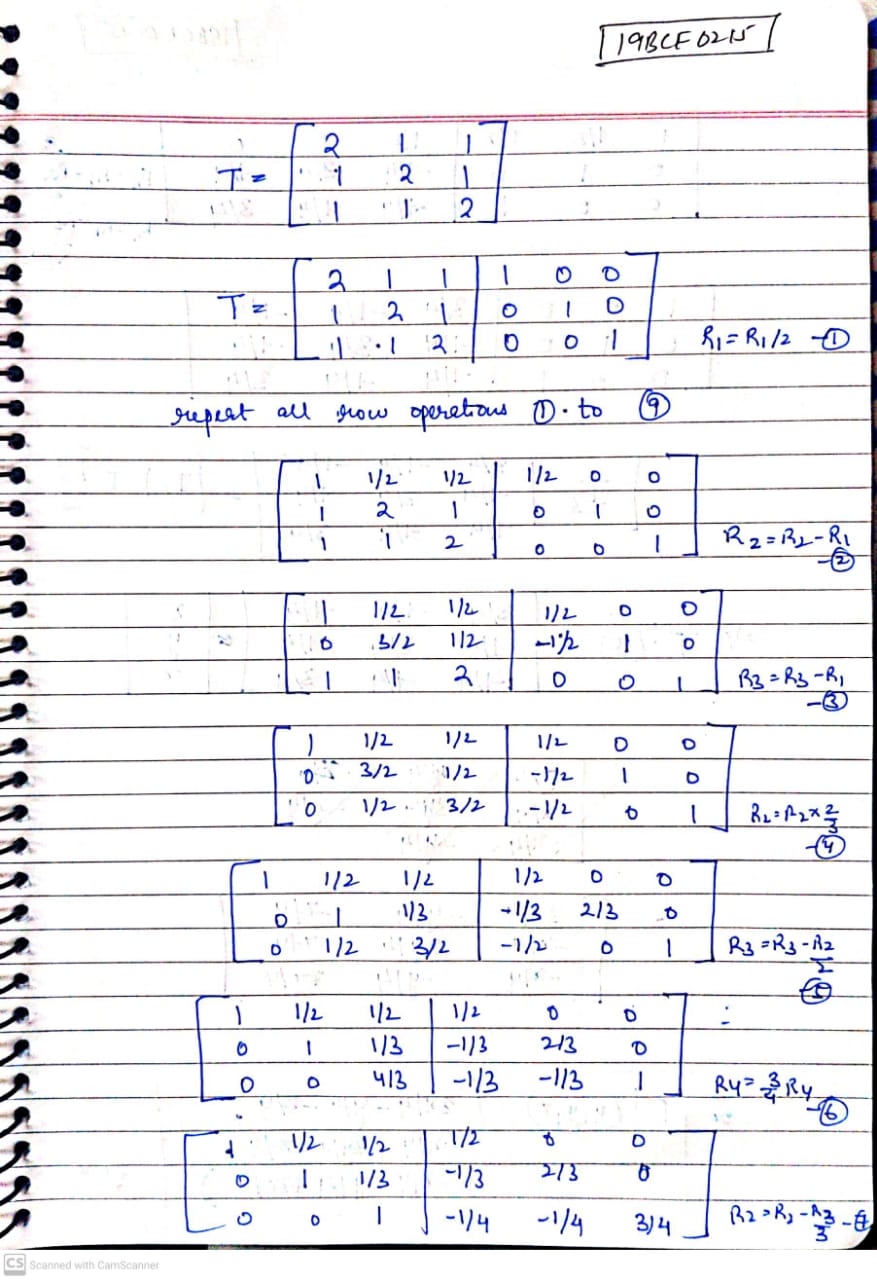 19BCE0215
2 1 1
T = 1 2 1
1 1 2
2 1 1 | 1 0 0
T = 1 2 1 | 0 1 0
1 1 2 | 0 0 1 R1 = R1/2 -①
repeat all row operations ① to ⑨
1 1/2 1/2 | 1/2 0 0
1 2 1 | 0 1 0
1 1 2 | 0 0 1 R2 = R2 - R1
-②
1 1/2 1/2 | 1/2 0 0
0 3/2 1/2 | -1/2 1 0
1 1 2 | 0 0 1 R3 = R3 - R1
-③
1 1/2 1/2 | 1/2 0 0
0 3/2 1/2 | -1/2 1 0
0 1/2 3/2 | -1/2 0 1 R2 = R2 × 2/3
-④
1 1/2 1/2 | 1/2 0 0
0 1 1/3 | -1/3 2/3 0
0 1/2 3/2 | -1/2 0 1 R3 = R3 - R2/2
-⑤
1 1/2 1/2 | 1/2 0 0
0 1 1/3 | -1/3 2/3 0
0 0 4/3 | -1/3 -1/3 1 R4 = 3/4 R4
-⑥
1 1/2 1/2 | 1/2 0 0
0 1 1/3 | -1/3 2/3 0
0 0 1 | -1/4 -1/4 3/4 R2 = R2 - R3/3 -⑦
CS Scanned with CamScanner